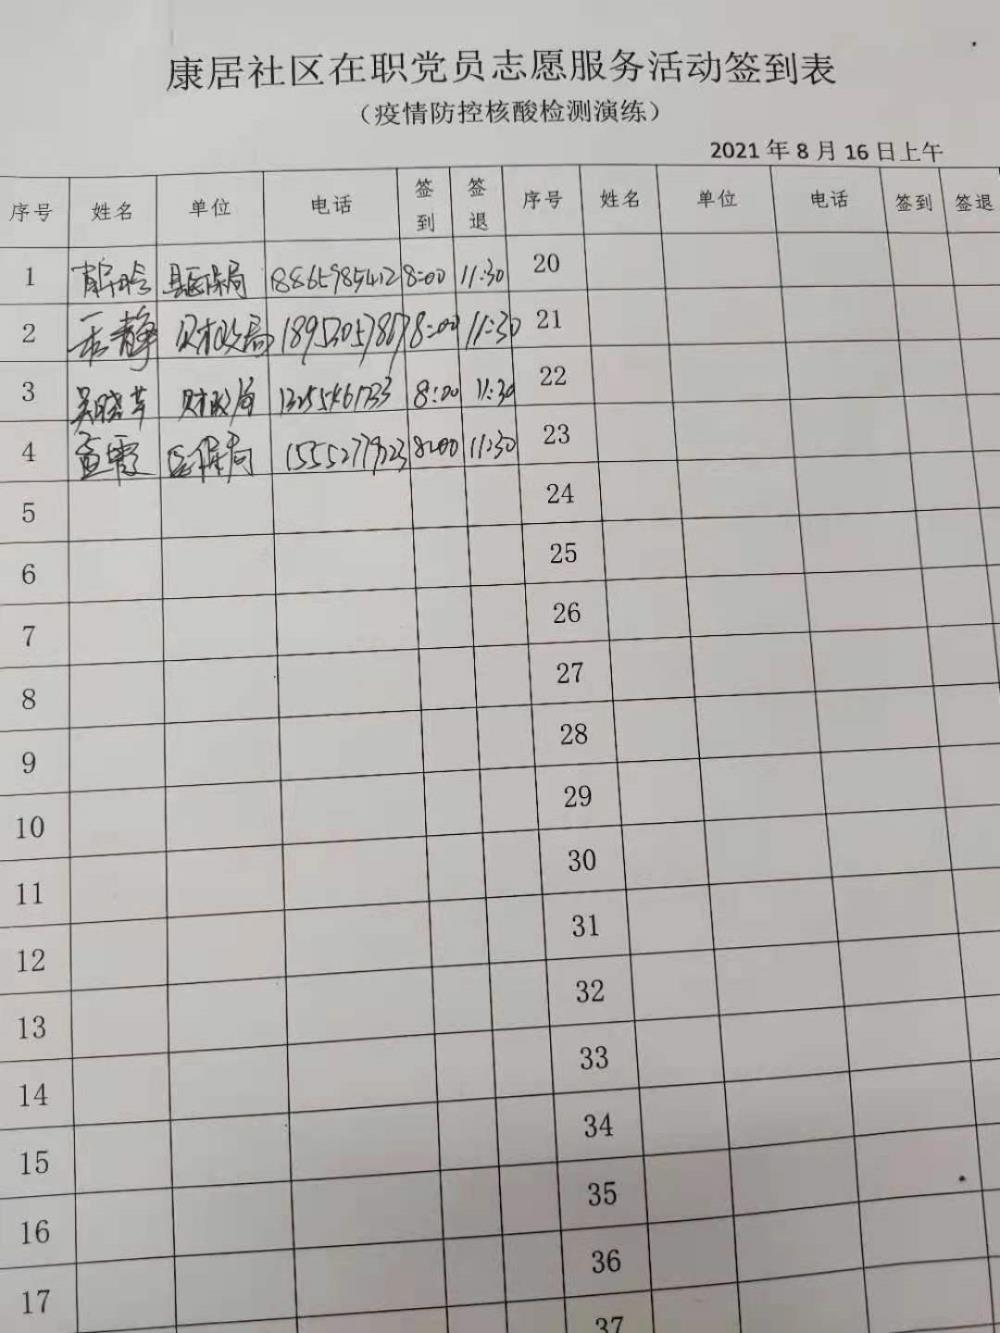 康居社区在职党员志愿服务活动签到表
（疫情防控核酸检测演练）
2021年8月16日上午
序号 姓名 单位 电话 签到 签退 序号 姓名 单位 电话 签到 签退
1 县医保局 18865985412 8:00 11:30 20
2 王静 财政局 8:00 11:30 21
3 吴晓苹 财政局 8:00 11:30 22
4 医保局 8:00 11:30 23
5 24
6 25
7 26
8 27
9 28
10 29
11 30
12 31
13 32
14 33
15 34
16 35
17 36
37